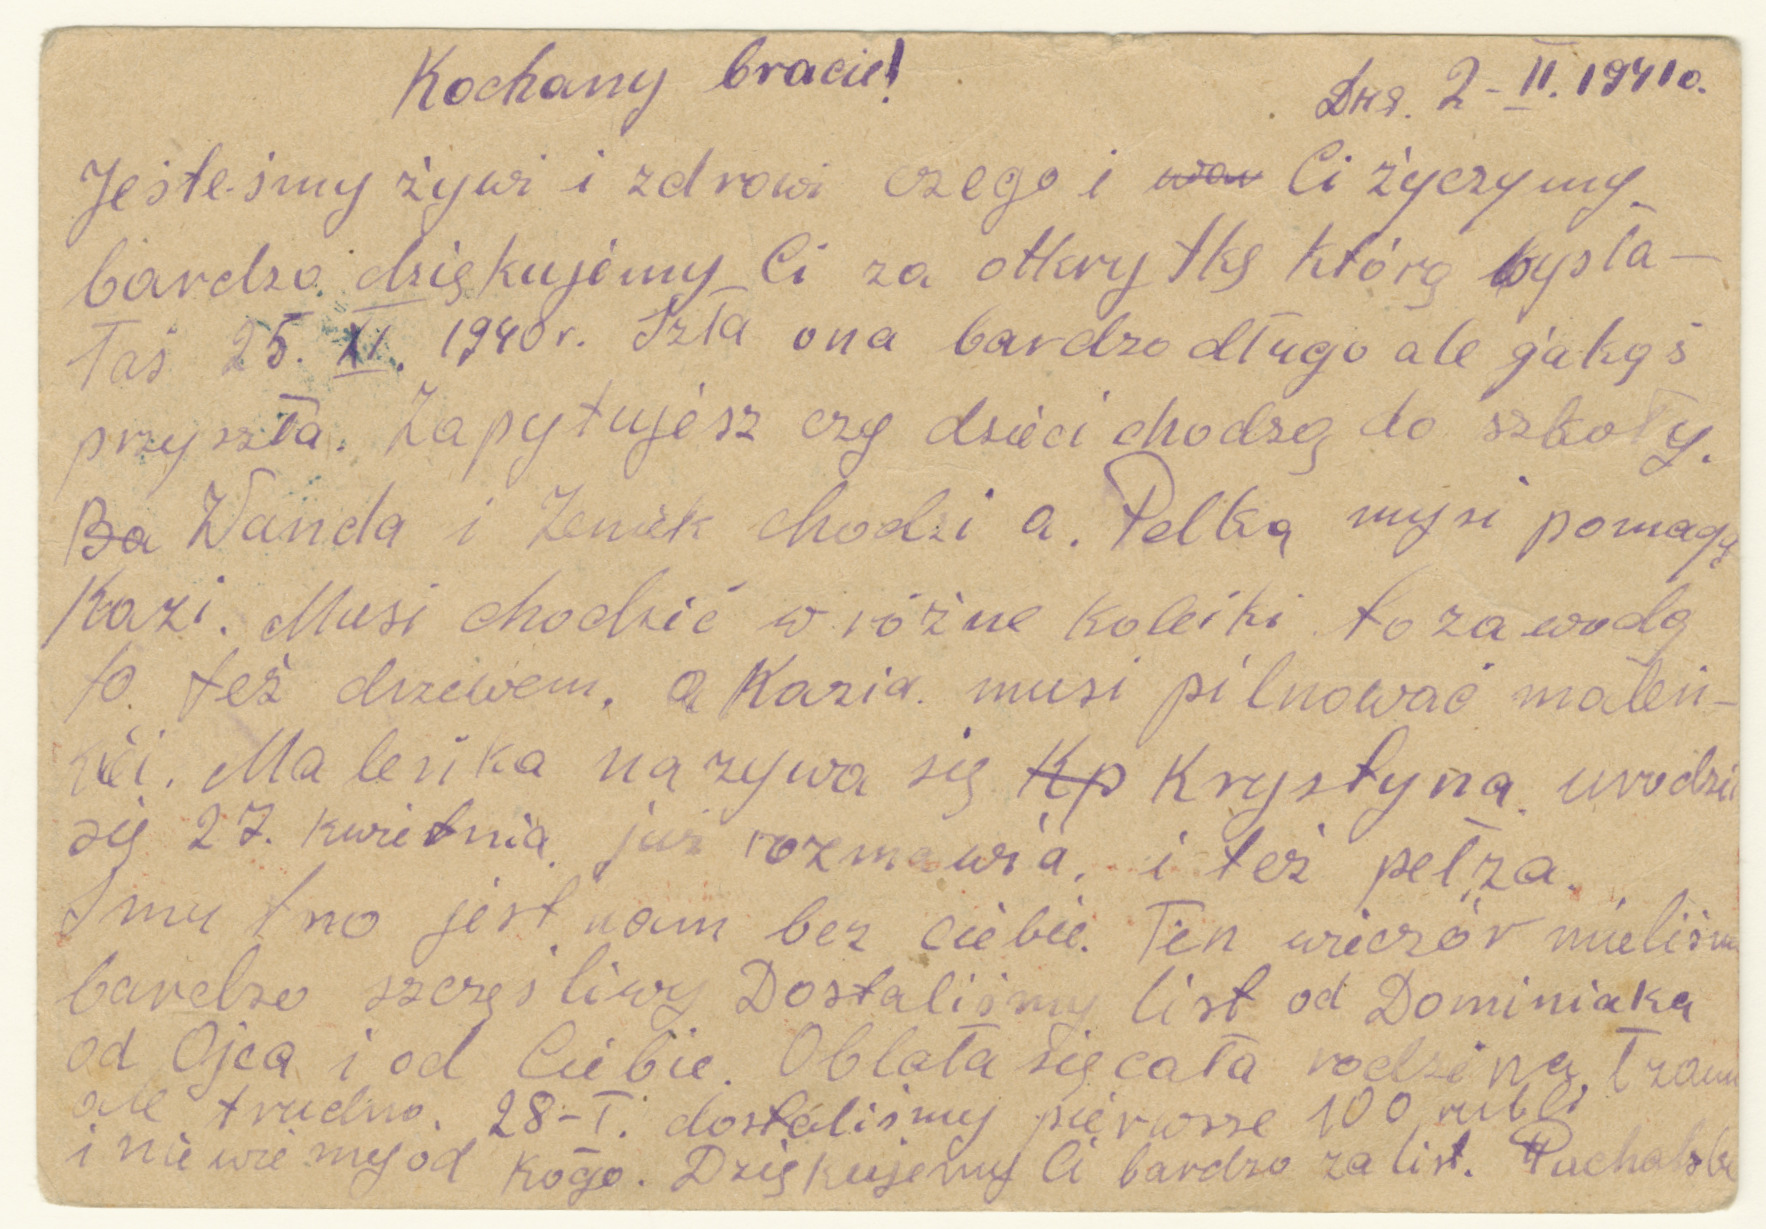 Kochany bracie!
Dnia. 2-II.1941r.
Jesteśmy żywi i zdrowi czego i wam Ci życzymy
bardzo dziękujemy Ci za otkrytkę którą wysła-
łaś 25. XI. 1940r. Szła ona bardzo długo ale jakąś
przyszła. Zapytujesz czy dzieci chodzą do szkoły.
Ba Wanda i Zeniek chodzi a. Felka musi pomagą
Kazi. Musi chodzić w różne koleiki to za wodą
to też drzewem. a Kazia. musi pilnować maleń-
kiei. Maleńka nazywa się Kp Krystyna urodzi
się 27. kwietnia już rozmawia. i też pełza.
Smutno jest nam bez ciebie. Ten wieczór mieliśmy
bardzo szczęśliwy Dostaliśmy list od Dominiaka
od Ojca i od Ciebie. Oblała się cała rodzina, łzami
ale trudno. 28-I. dostaliśmy pierwsze 100 rubli
i nie wiemy od kogo. Dziękujemy Ci bardzo za list. Puchalska